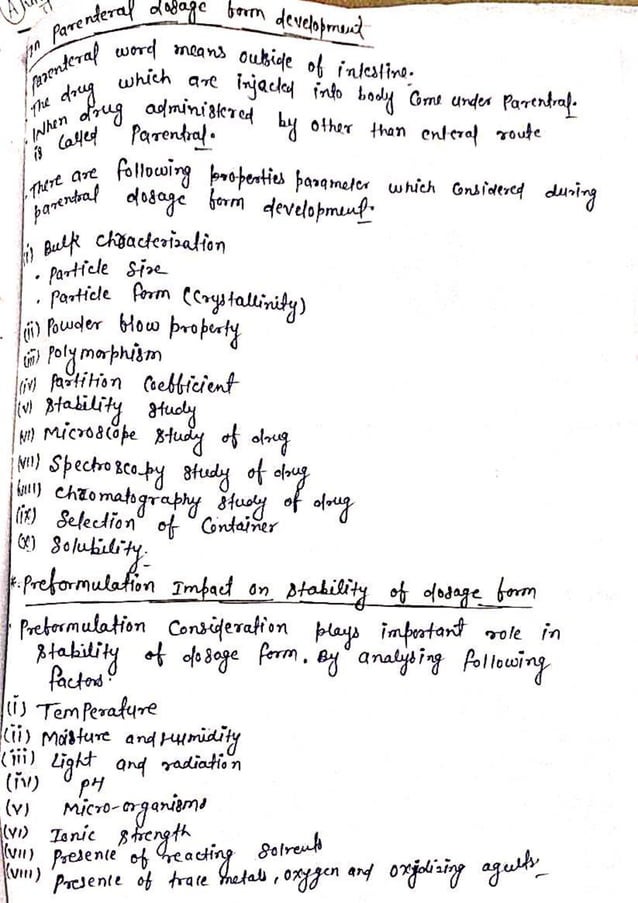 In Parenteral dosage form development
Parenteral word means outside of intestine.
The drug which are injected into body Come under Parentral.
When drug administered by other than enteral route
is Called Parentral.
There are following properties parameter which Considered during
parentral dosage form development.
(i) Bulk characterization
• Particle size
• Particle form (Crystallinity)
(ii) Powder flow property
(iii) Polymorphism
(iv) Partition Coefficient
(v) Stability study
(vi) Microscope study of drug
(vii) Spectroscopy study of drug
(viii) Chromatography study of drug
(ix) Selection of Container
(x) Solubility.
*. Preformulation Impact on stability of dosage form
• Preformulation Consideration plays important role in
stability of dosage form. By analysing following
factors:
(i) Temperature
(ii) Moisture and Humidity
(iii) Light and radiation
(iv) pH
(v) Micro-organisms
(vi) Ionic strength
(vii) Presence of reacting solvents
(viii) Presence of trace metals, oxygen and oxidizing agents